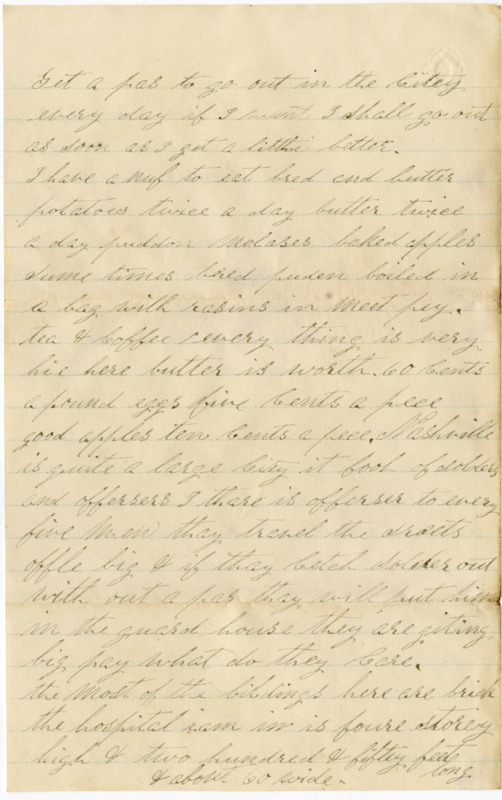 Get a pas to go out in the Citey
every day if I want I shall go out
as soon as I get a little better.
I have a nuf to eat bred and butter
potatoes twice a day butter twice
a day puddon molases baked apples
sume times bred puden boiled in
a bag with rasins in meet pey.
tea & Coffee every thing is very
hie here butter is worth 60 Cents
a pound eggs five Cents a peec
good apples ten Cents a peec. Nashville
is quite a large City it fool of solders
and offersers I thare is offerser to every
five men thay travel the streets
offle big & if thay Cetch solder out
with out a pas thay will put him
in the guard house they are giting
big pay what do they Care.
the most of the bildings here are brick
the hospital iam in is foure storey
high & two hundred & fifty feet
long
& about 60 wide.